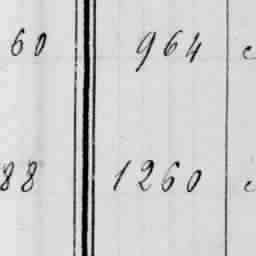 60 964
88 1260